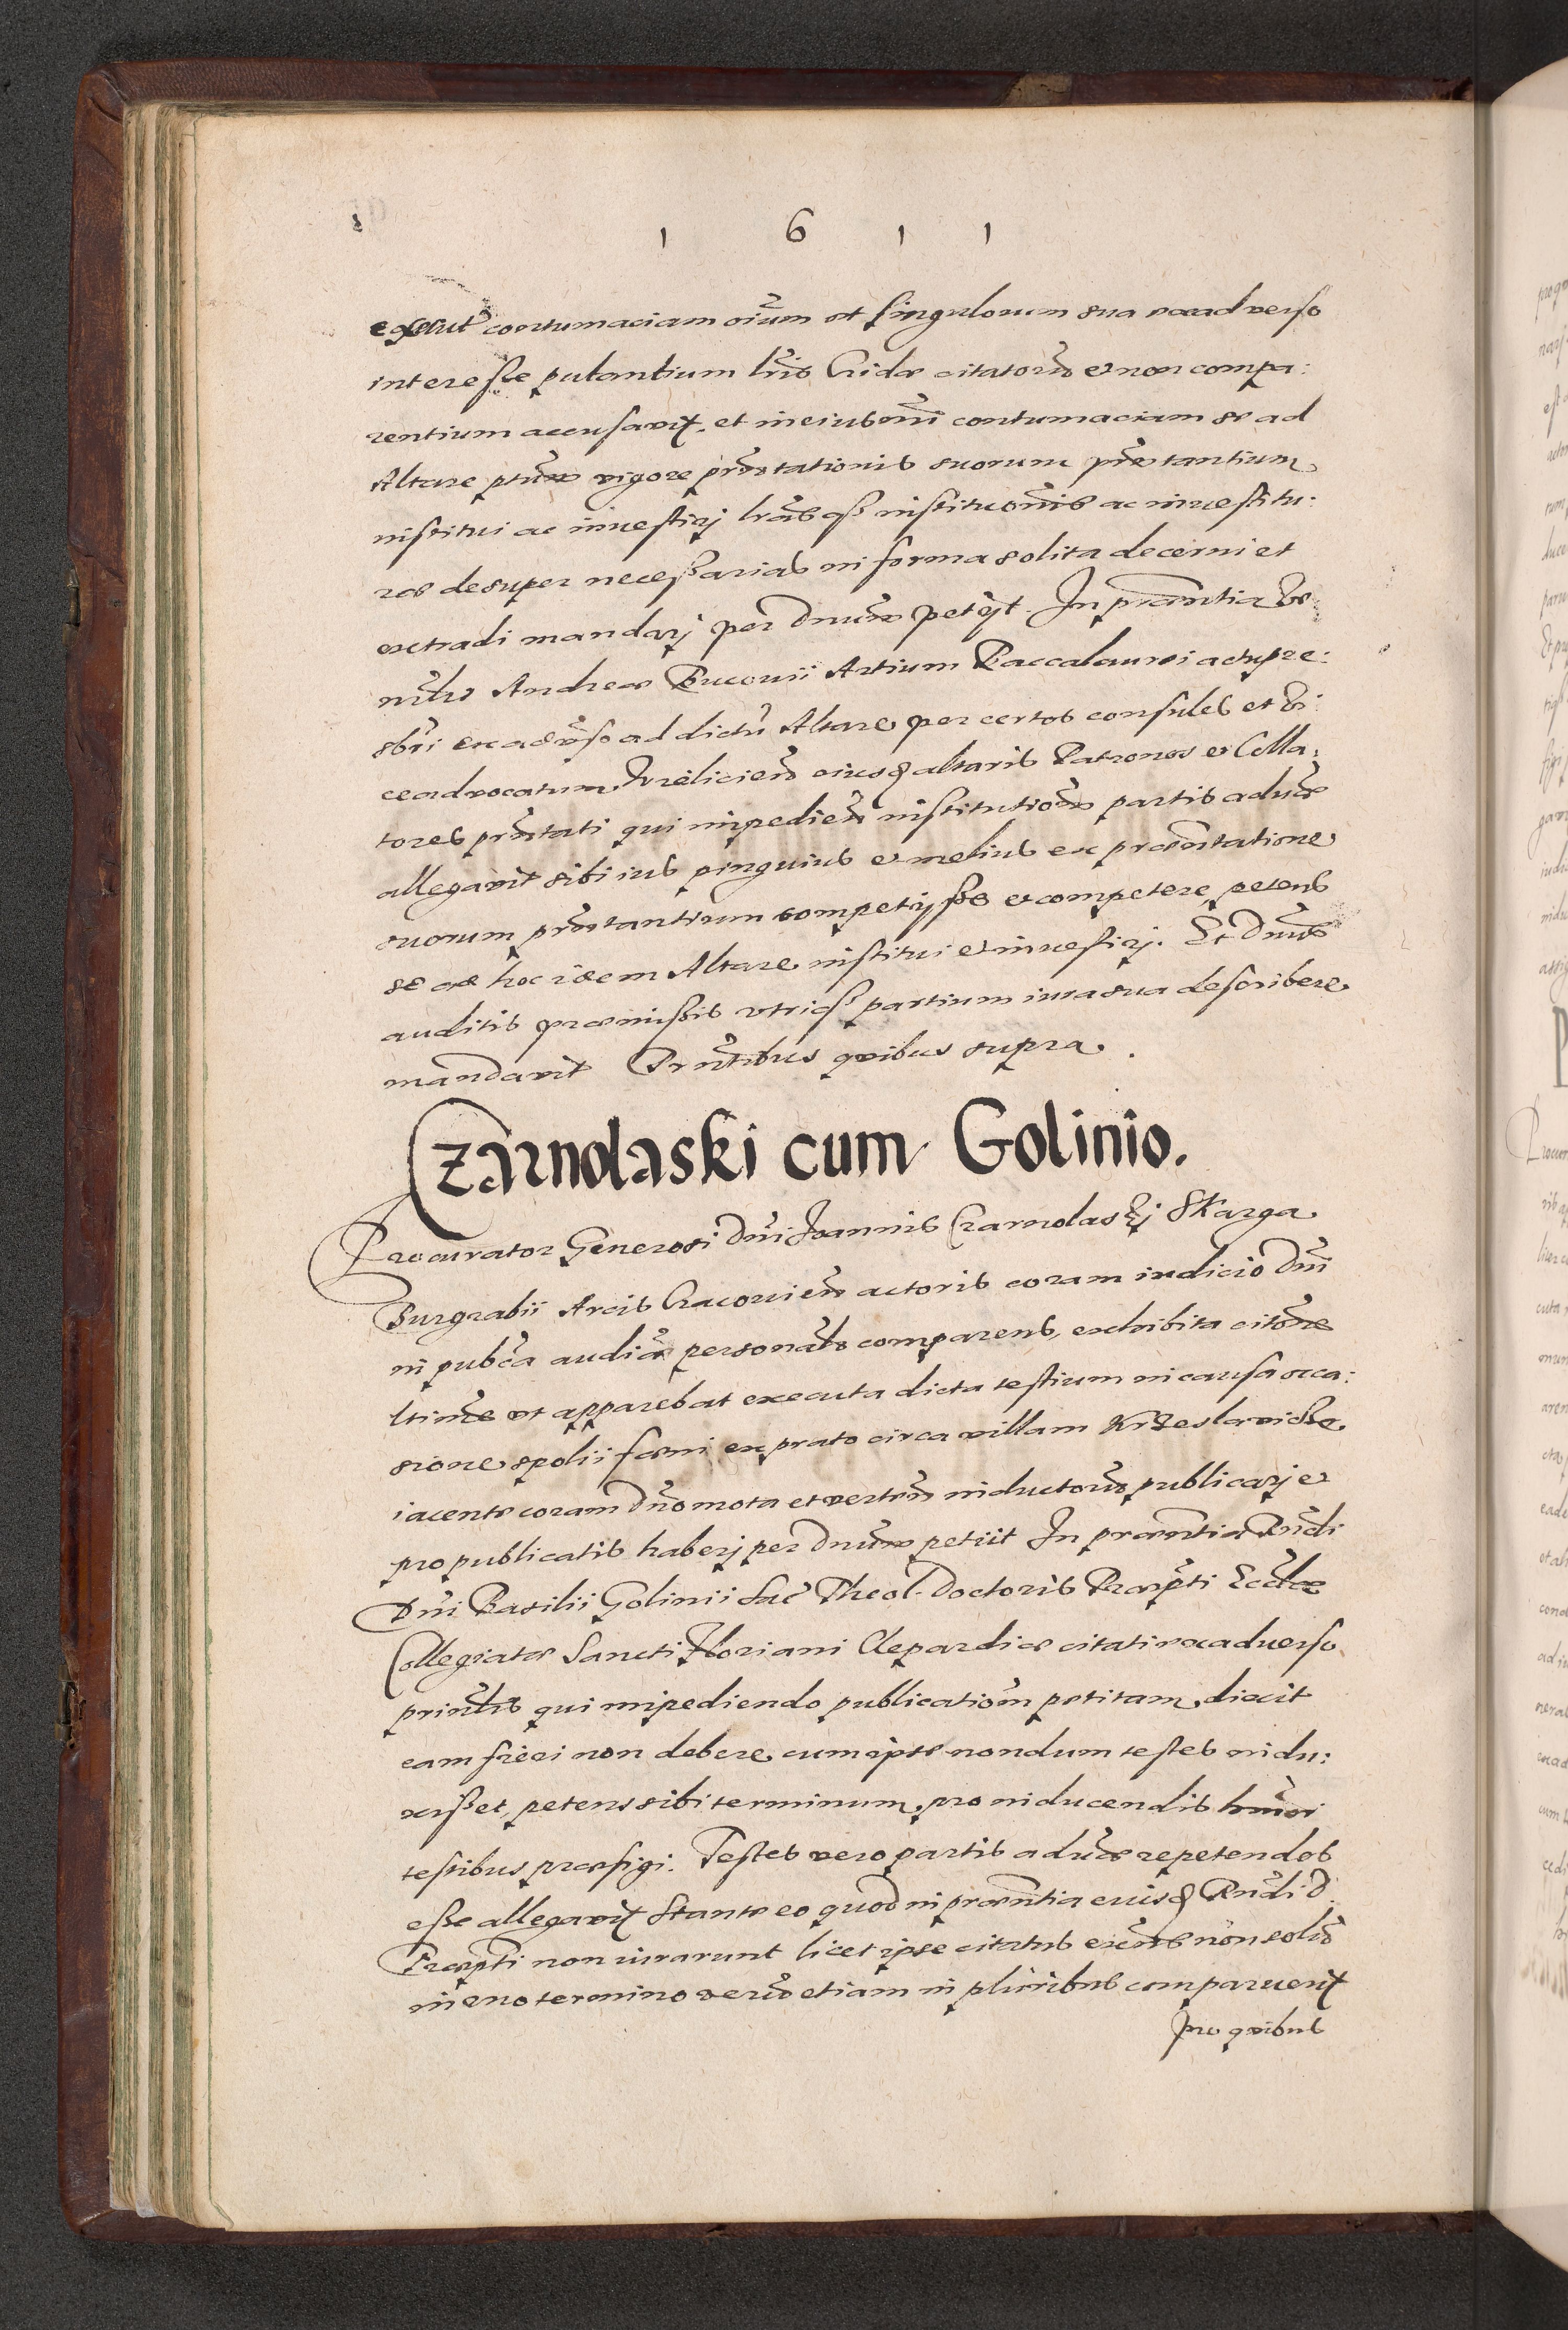 1 6 1 1
contumaciam oium et singulorum sua ex aduerso
interesse putantium lris Cridae citatorum et non compa:
rentium accusavit, et in eius omni contumaciam se ad
Altare ptum vigore prntationis suorum prntantium
institui ac inuestirj lrasque institutionis ac inuestitu:
rae desuper necessarias in forma solita decerni et
extradi mandarj per Dnum petijt. In prntia
Andreae Bucovii Artium Baccalaurei ac
ex aduerso ad dictu Altare per certos consules et
ceadvocatum Ireliciens eiusque altaris Patronos et Colla:
tores prntati qui impediens institutionem partis aduersae
allegavit sibi ius pinguius et melius ex prntatione
suorum prntantium competijsse et competere, petens
se ad hoc idem Altare institui et inuestirj. Et Dnus
auditis praemissis utriusque partium iura sua describere
mandavit Prntibus quibus supra.
Czarnolaski cum Golinio.
Procurator Generosi Dni Joannis Czarnolaskj Skarga
Burgrabii Arcis Cracovien actoris coram iudicio Dni
in pubca audia personalr comparens, exhibita citone
ltime ut apparebat executa dicta testium in causa occa:
sione spolii foeni ex prato circa villam Krzeslawicze
iacente coram Dno mota et verten inductorum publicarj et
pro publicatis haberj per Dnum petiit In prntia Rndi
Dni Basilii Golinii Sac Theol. Doctoris Praepti Eccliae
Collegiatae Sancti Floriani Clepardiae citati ex aduerso
printis qui impediendo publicationem petitam, dixit
eam fieri non debere cum ipse nondum testes indu:
xisset, petens sibi terminum pro inducendis hmoi
testibus praefigi. Testes vero partis aduersae repetendos
esse allegavit Stante eo quod in prntia eiusdem Rndi D.
Praepti non iurarunt licet ipse citatus existens non solum
in eno termino verum etiam in pluribus comparuerit
pro quibus